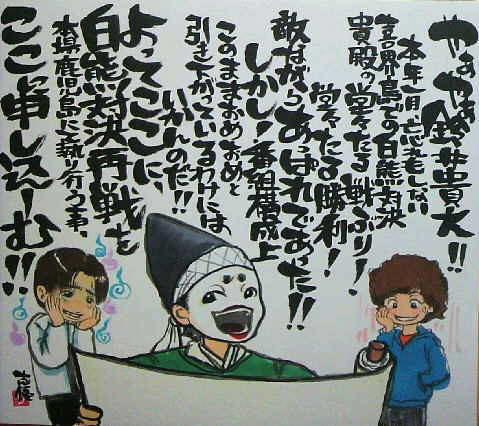 やぁやぁ鈴井貴大!!
本年一月、忘れもしない
喜界島での白熊対決
貴殿の堂々たる戦ぶり!
堂々たる勝利!
敵ながらあっぱれであった!!
しかし!番組構成上
このままおめおめと
引き下がっているわけには
いかんのだ!!
よってここに、
白熊対決再戦を
本県鹿児島にて執り行う事、
ここに申し込ーむ!!